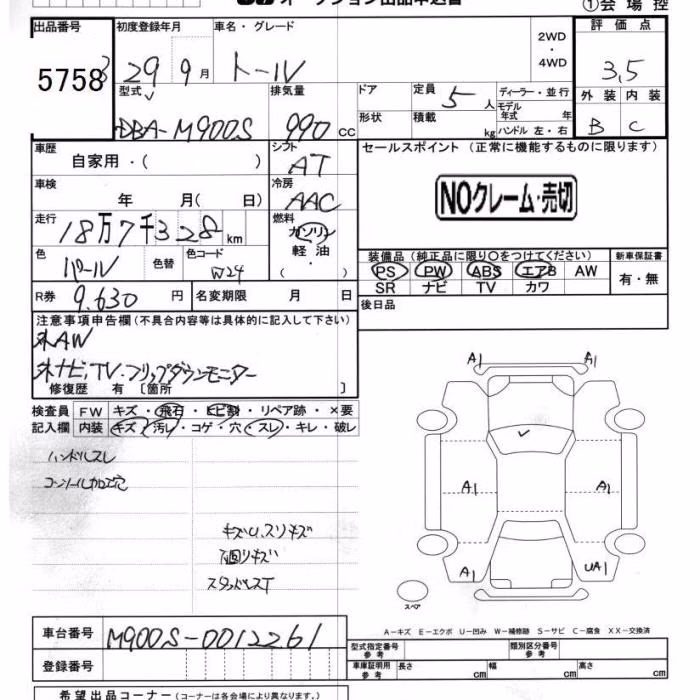 ①会場控
出品番号 初度登録年月 車名・グレード 2WD・4WD 評価点
5758 29 9月 トール 3.5
型式 排気量 ドア 定員 5人 ディーラー・並行 外装 内装
DBA-M900S 990cc 形状 積載 kg モデル年式 年 ハンドル 左・右 B C
車歴 シフト セールスポイント (正常に機能するものに限ります)
自家用・( ) AT
車検 冷房 NOクレーム・売切
年 月( 日) AAC
走行 燃料
18万7千328km ガソリン
色 色替 色コード 軽油・ 装備品 (純正品に限り○をつけてください) 新車保証書
パール W24 ( ) PS PW ABS エアB AW 有・無
SR ナビ TV カワ
R券 9,630円 名変期限 月 日 後日品
注意事項申告欄 (不具合内容等は具体的に記入して下さい)
外AW
外ナビ,TV.フリップダウンモニター
修復歴 有 [箇所 ]
検査員 FW キズ・飛石・ヒビ割・リペア跡・×要
記入欄 内装 キズ・汚レ・コゲ・穴・スレ・キレ・破レ
ハンドルスレ
コンソール加工穴
キズU.スリキズ
下廻りキズ
スタッドレスT
A1 A1
A1 A1
A1 UA1
スペア
A-キズ E-エクボ U-凹み W-補修跡 S-サビ C-腐食 XX-交換済
車台番号 M900S-0012261
型式指定番号 参考 類別区分番号 参考
登録番号 車庫証明用 参考 長さ cm 幅 cm 高さ cm
希望出品コーナー (コーナーは各会場により異なります。)